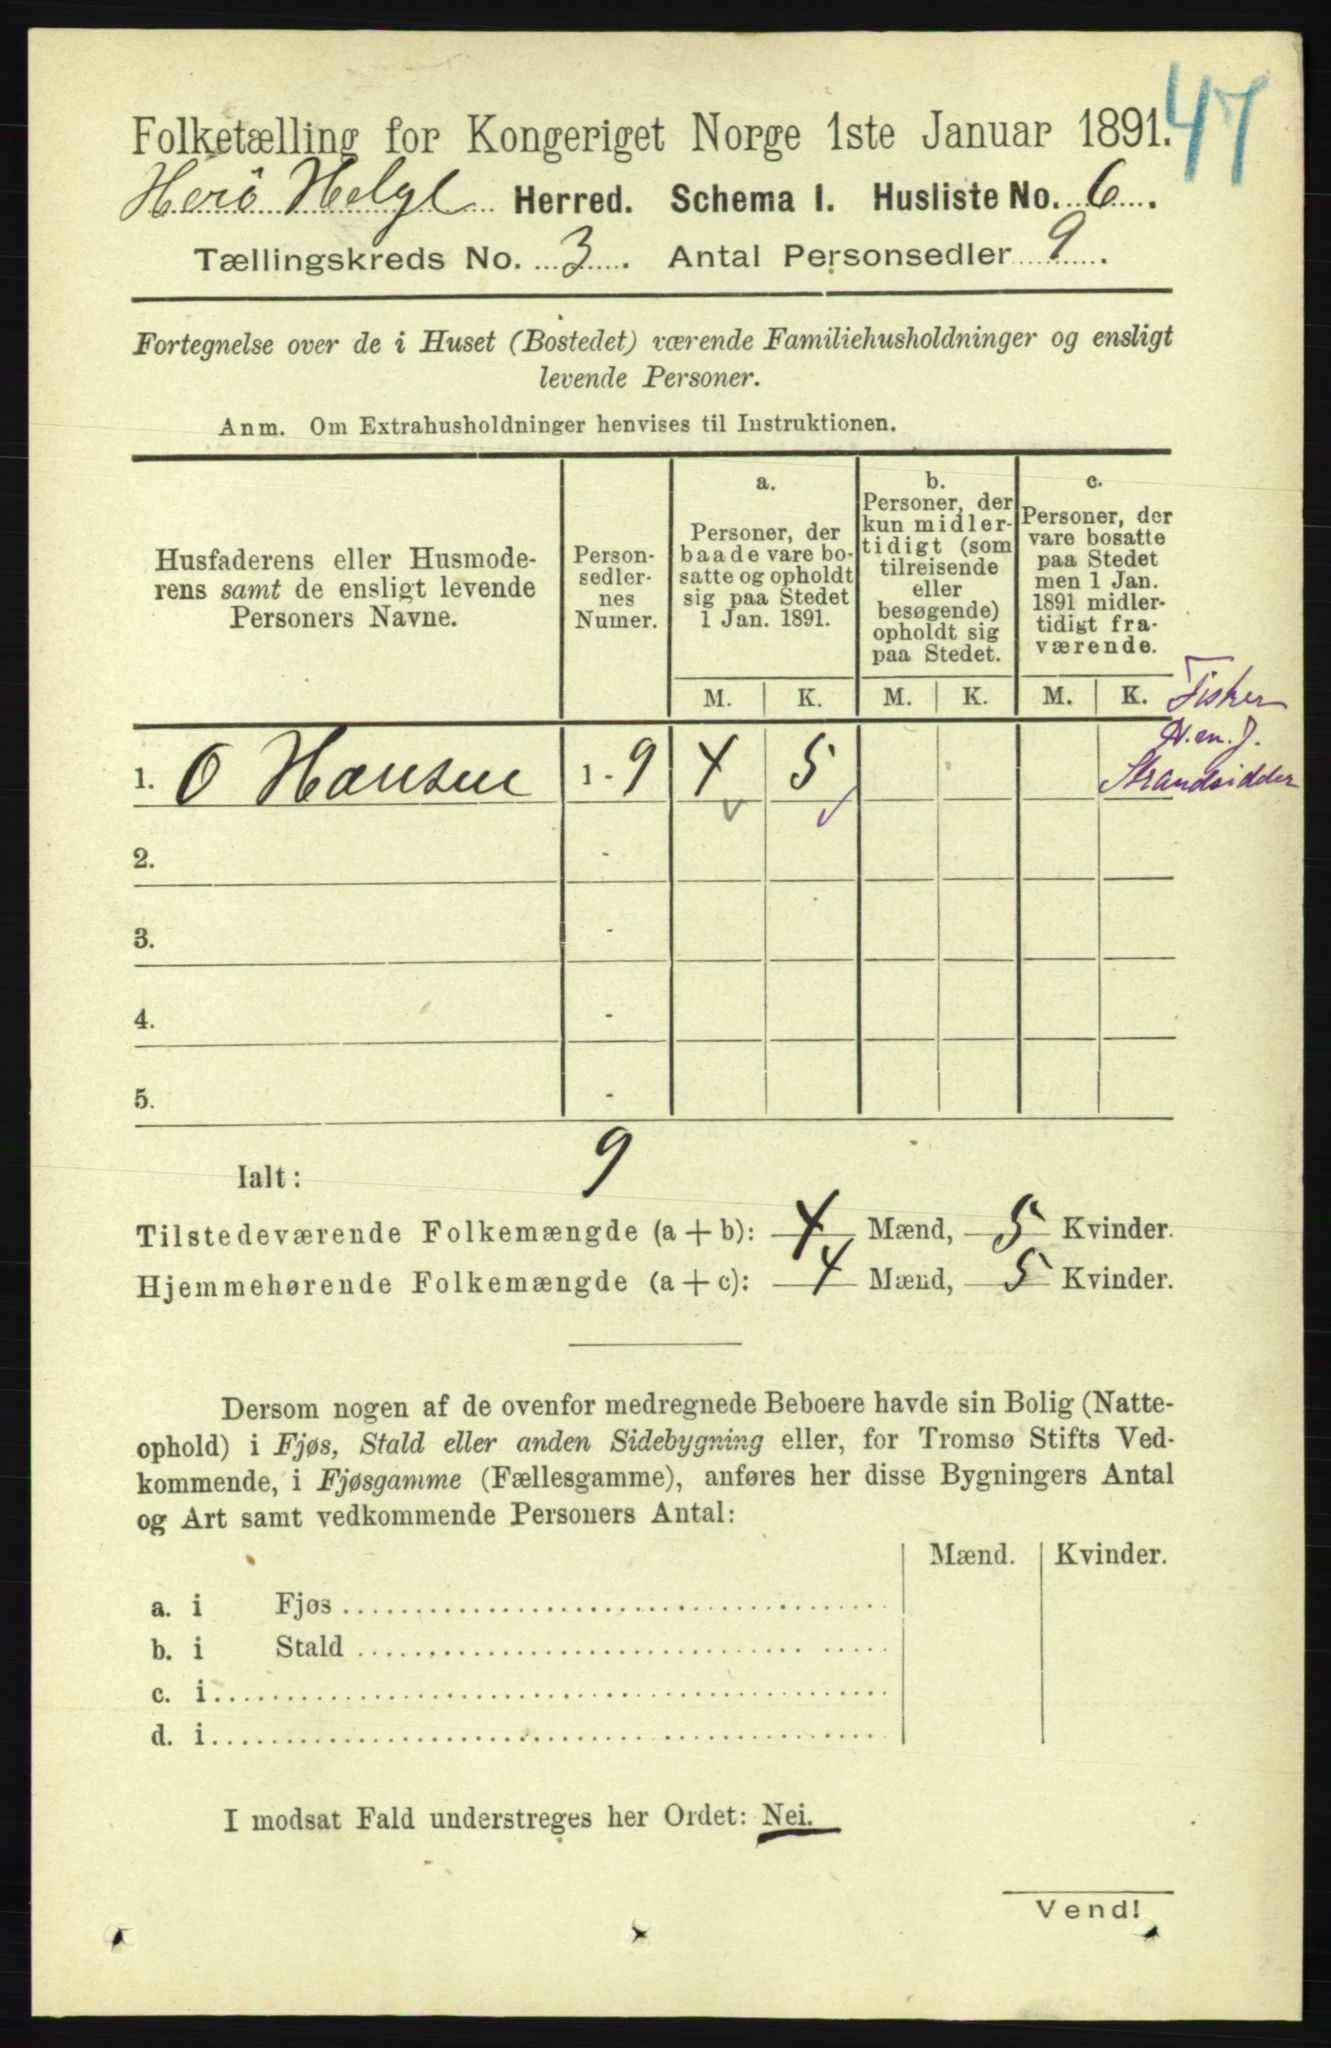 47
Folketælling for Kongeriget Norge 1ste Januar 1891.
Herö Helgl Herred. Schema I. Husliste No. 6.
Tællingskreds No. 3. Antal Personsedler 9.
Fortegnelse over de i Huset (Bostedet) værende Familiehusholdninger og ensligt
levende Personer.
Anm. Om Extrahusholdninger henvises til Instruktionen.
Husfaderens eller Husmode-
rens samt de ensligt levende
Personers Navne.
Person-
sedler-
nes
Numer.
a.
Personer, der
baade vare bo-
satte og opholdt
sig paa Stedet
1 Jan. 1891.
b.
Personer, der
kun midler-
tidigt (som
tilreisende
eller
besøgende)
opholdt sig
paa Stedet.
c.
Personer, der
vare bosatte
paa Stedet
men 1 Jan.
1891 midler-
tidigt fra-
værende.
M. K. M. K. M. K.
Fisker
Strandsidder
1. O Hansen 1 - 9 4 5
2. -
3. -
4. -
5. -
Ialt: 9
Tilstedeværende Folkemængde (a + b): 4 Mænd, 5 Kvinder.
Hjemmehørende Folkemængde (a + c): 4 Mænd, 5 Kvinder.
Dersom nogen af de ovenfor medregnede Beboere havde sin Bolig (Natte-
ophold) i Fjøs, Stald eller anden Sidebygning eller, for Tromsø Stifts Ved-
kommende, i Fjøsgamme (Fællesgamme), anføres her disse Bygningers Antal
og Art samt vedkommende Personers Antal:
Mænd. Kvinder.
a. i Fjøs
b. i Stald
c. i
d. i
I modsat Fald understreges her Ordet: Nei.
Vend!